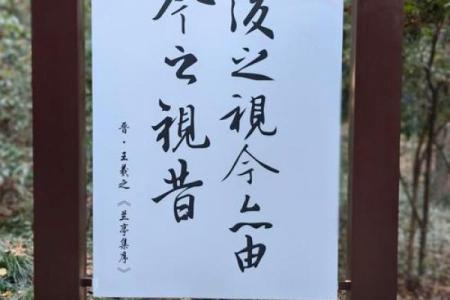 後之視今亦由
今之視昔
晋·王羲之《兰亭集序》